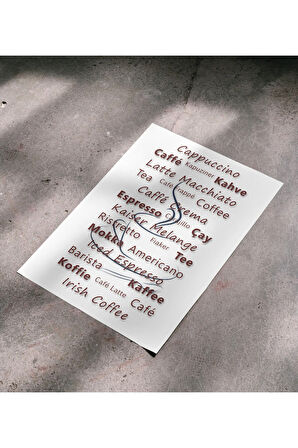 Cappuccino
Caffé Kapuziner Kahve
Latte Macchiato
Tea Café frappé Coffee
Caffé Crema
Espresso
Kaiser Melange Çay
Ristretto Fiaker Tee
Mokka Americano
Iced Espresso
Barista Kaffee
Koffie Café Latte Café
Irish Coffee